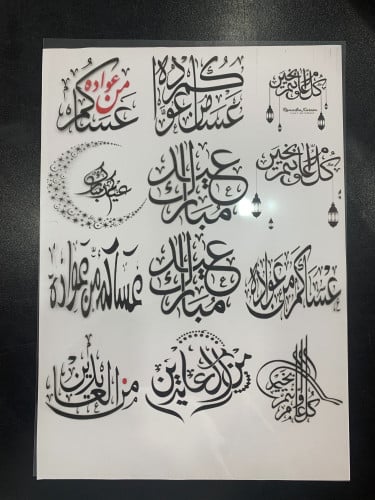 كل عام وأنتم بخير
Ramadan Kareem
عساكم من عواده
عساكم من عواده
كل عام وأنتم بخير
عيد مبارك
عيدكم مبارك
عساكم من عواده
عيد مبارك
عساكم من عواده
كل عام وأنتم بخير
من العايدين
من العايدين